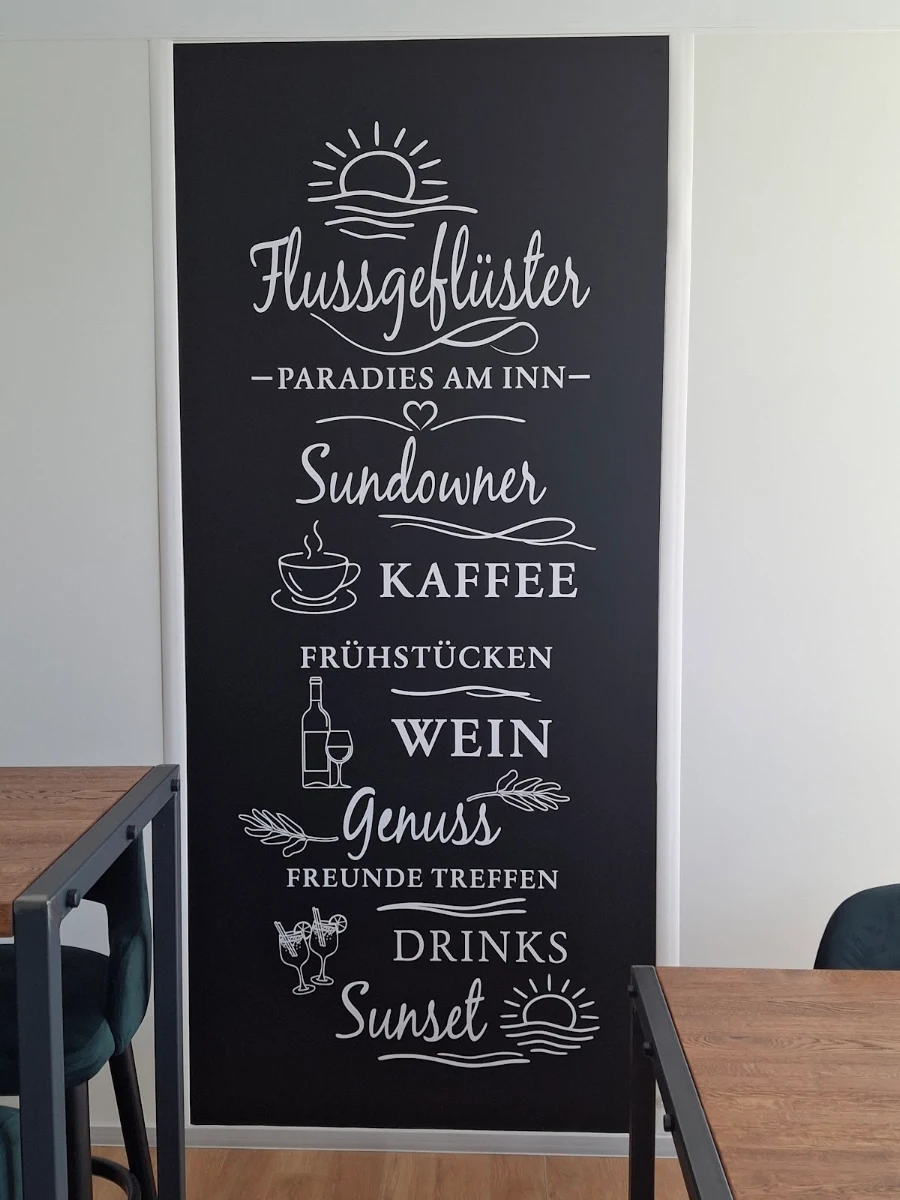 Flussgeflüster
–PARADIES AM INN–
Sundowner
KAFFEE
FRÜHSTÜCKEN
WEIN
Genuss
FREUNDE TREFFEN
DRINKS
Sunset